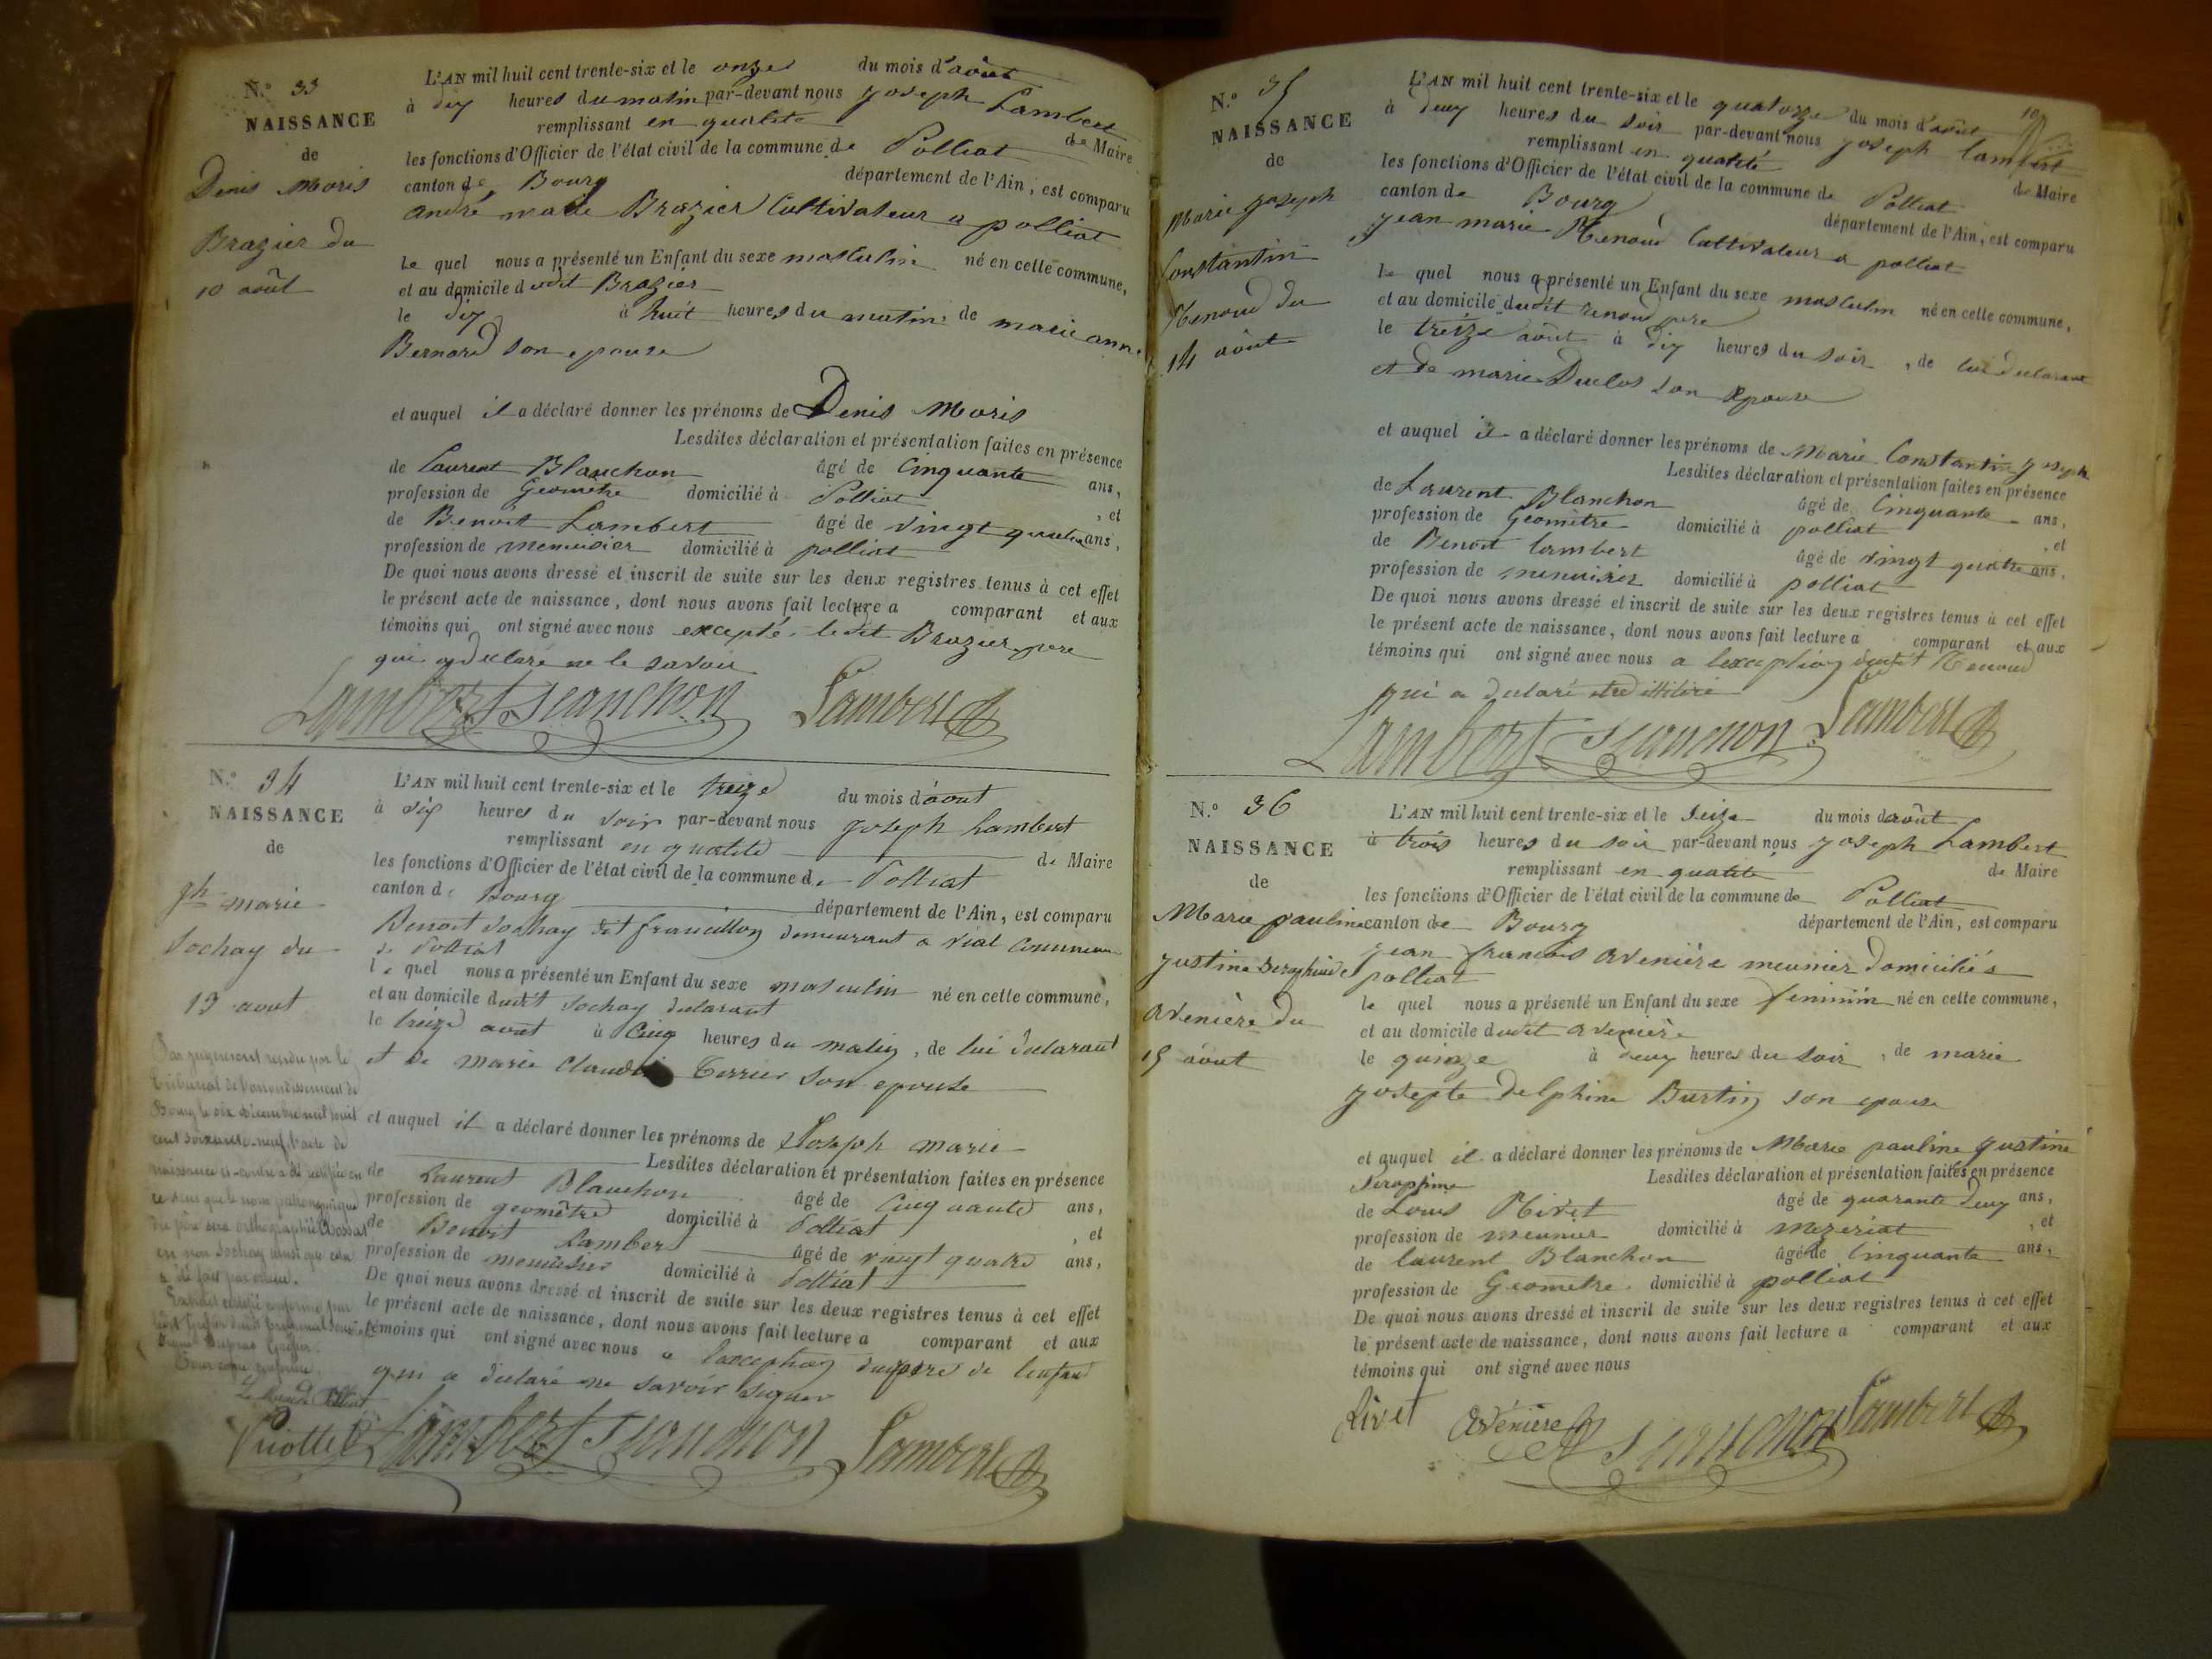 N.º 33
NAISSANCE
de
Denis Moris
Brazier du
10 août
L'AN mil huit cent trente-six et le onze du mois d'août
à dix heures du matin par-devant nous joseph Lambert
remplissant en qualité de Maire
les fonctions d'Officier de l'état civil de la commune de Polliat
canton de Bourg département de l'Ain, est comparu
andré marie Brazier Cultivateur a polliat
le quel nous a présenté un Enfant du sexe masculin né en cette commune,
et au domicile dudit Brazier
le dix à huit heures du matin de marie anne
Bernard son epouse
et auquel il a déclaré donner les prénoms de Denis Moris
Lesdites déclaration et présentation faites en présence
de Laurent Blanchon âgé de Cinquante ans,
profession de Geomètre domicilié à Polliat , et
de Benoit Lambert âgé de vingt quatre ans,
profession de menuisier domicilié à polliat
De quoi nous avons dressé et inscrit de suite sur les deux registres tenus à cet effet
le présent acte de naissance, dont nous avons fait lecture a comparant et aux
témoins qui ont signé avec nous excepté ledit Brazier pere
qui a declaré ne le savoir
Lambert Blanchon Lambert
N.º 34
NAISSANCE
de
jh marie
Sochay du
13 aout
Par jugement rendu par le
tribunal de l'arrondissement de
Bourg le six décembre mil huit
cent soixante-neuf, l'acte de
naissance ci-contre a été rectifié en
ce sens que le nom patronymique
du père sera orthographié
en non Sochay ainsi que cela
a été fait par erreur.
Pour copie conforme
Le Maire de Polliat
L'AN mil huit cent trente-six et le treize du mois d'aout
à six heures du soir par-devant nous joseph Lambert
remplissant en qualité de Maire
les fonctions d'Officier de l'état civil de la commune de Polliat
canton de Bourg département de l'Ain, est comparu
Benoit Sochay dit francillon demeurant a vial Commune
de Polliat
le quel nous a présenté un Enfant du sexe masculin né en cette commune,
et au domicile dudit Sochay declarant
le treize aout à Cinq heures du matin, de lui declarant
et de marie Claudine Terrier son epouse
et auquel il a déclaré donner les prénoms de Joseph marie
Lesdites déclaration et présentation faites en présence
de Laurent Blanchon âgé de Cinquante ans,
profession de geomètre domicilié à Polliat , et
de Benoit Lambert âgé de vingt quatre ans,
profession de menuisier domicilié à Polliat
De quoi nous avons dressé et inscrit de suite sur les deux registres tenus à cet effet
le présent acte de naissance, dont nous avons fait lecture a comparant et aux
témoins qui ont signé avec nous a lexception du pere de lenfant
qui a declaré ne savoir signer
Lambert Blanchon Lambert
N.º 35
NAISSANCE
de
Marie joseph
Constantin
Renoud du
14 août
L'AN mil huit cent trente-six et le quatorze du mois d'août
à deux heures du soir par-devant nous joseph lambert
remplissant en qualité de Maire
les fonctions d'Officier de l'état civil de la commune de Polliat
canton de Bourg département de l'Ain, est comparu
jean marie Renoud Cultivateur a polliat
le quel nous a présenté un Enfant du sexe masculin né en cette commune,
et au domicile dudit renoud pere
le treize août à dix heures du soir, de lui declarant
et de marie Duclos son epouse
et auquel il a déclaré donner les prénoms de Marie Constantin joseph
Lesdites déclaration et présentation faites en présence
de Laurent Blanchon âgé de Cinquante ans,
profession de Geomètre domicilié à polliat , et
de Benoit lambert âgé de vingt quatre ans,
profession de menuisier domicilié à polliat
De quoi nous avons dressé et inscrit de suite sur les deux registres tenus à cet effet
le présent acte de naissance, dont nous avons fait lecture a comparant et aux
témoins qui ont signé avec nous a lexception dudit Renoud
qui a declaré
Lambert Blanchon Lambert
N.º 36
NAISSANCE
de
Marie pauline
justine seraphine
avenière du
15 août
L'AN mil huit cent trente-six et le seize du mois d'août
à trois heures du soir par-devant nous joseph Lambert
remplissant en qualité de Maire
les fonctions d'Officier de l'état civil de la commune de Polliat
canton de Bourg département de l'Ain, est comparu
jean francois avenière meunier domicilié a
polliat
le quel nous a présenté un Enfant du sexe feminin né en cette commune,
et au domicile dudit avenière
le quinze à deux heures du soir, de marie
josepte delphine Burtin son epouse
et auquel il a déclaré donner les prénoms de Marie pauline justine
seraphine Lesdites déclaration et présentation faites en présence
de Louis Rivet âgé de quarante deux ans,
profession de meunier domicilié à mezériat , et
de laurent Blanchon âgé de Cinquante ans,
profession de Geomètre domicilié à polliat
De quoi nous avons dressé et inscrit de suite sur les deux registres tenus à cet effet
le présent acte de naissance, dont nous avons fait lecture a comparant et aux
témoins qui ont signé avec nous
Rivet avenière Blanchon Lambert